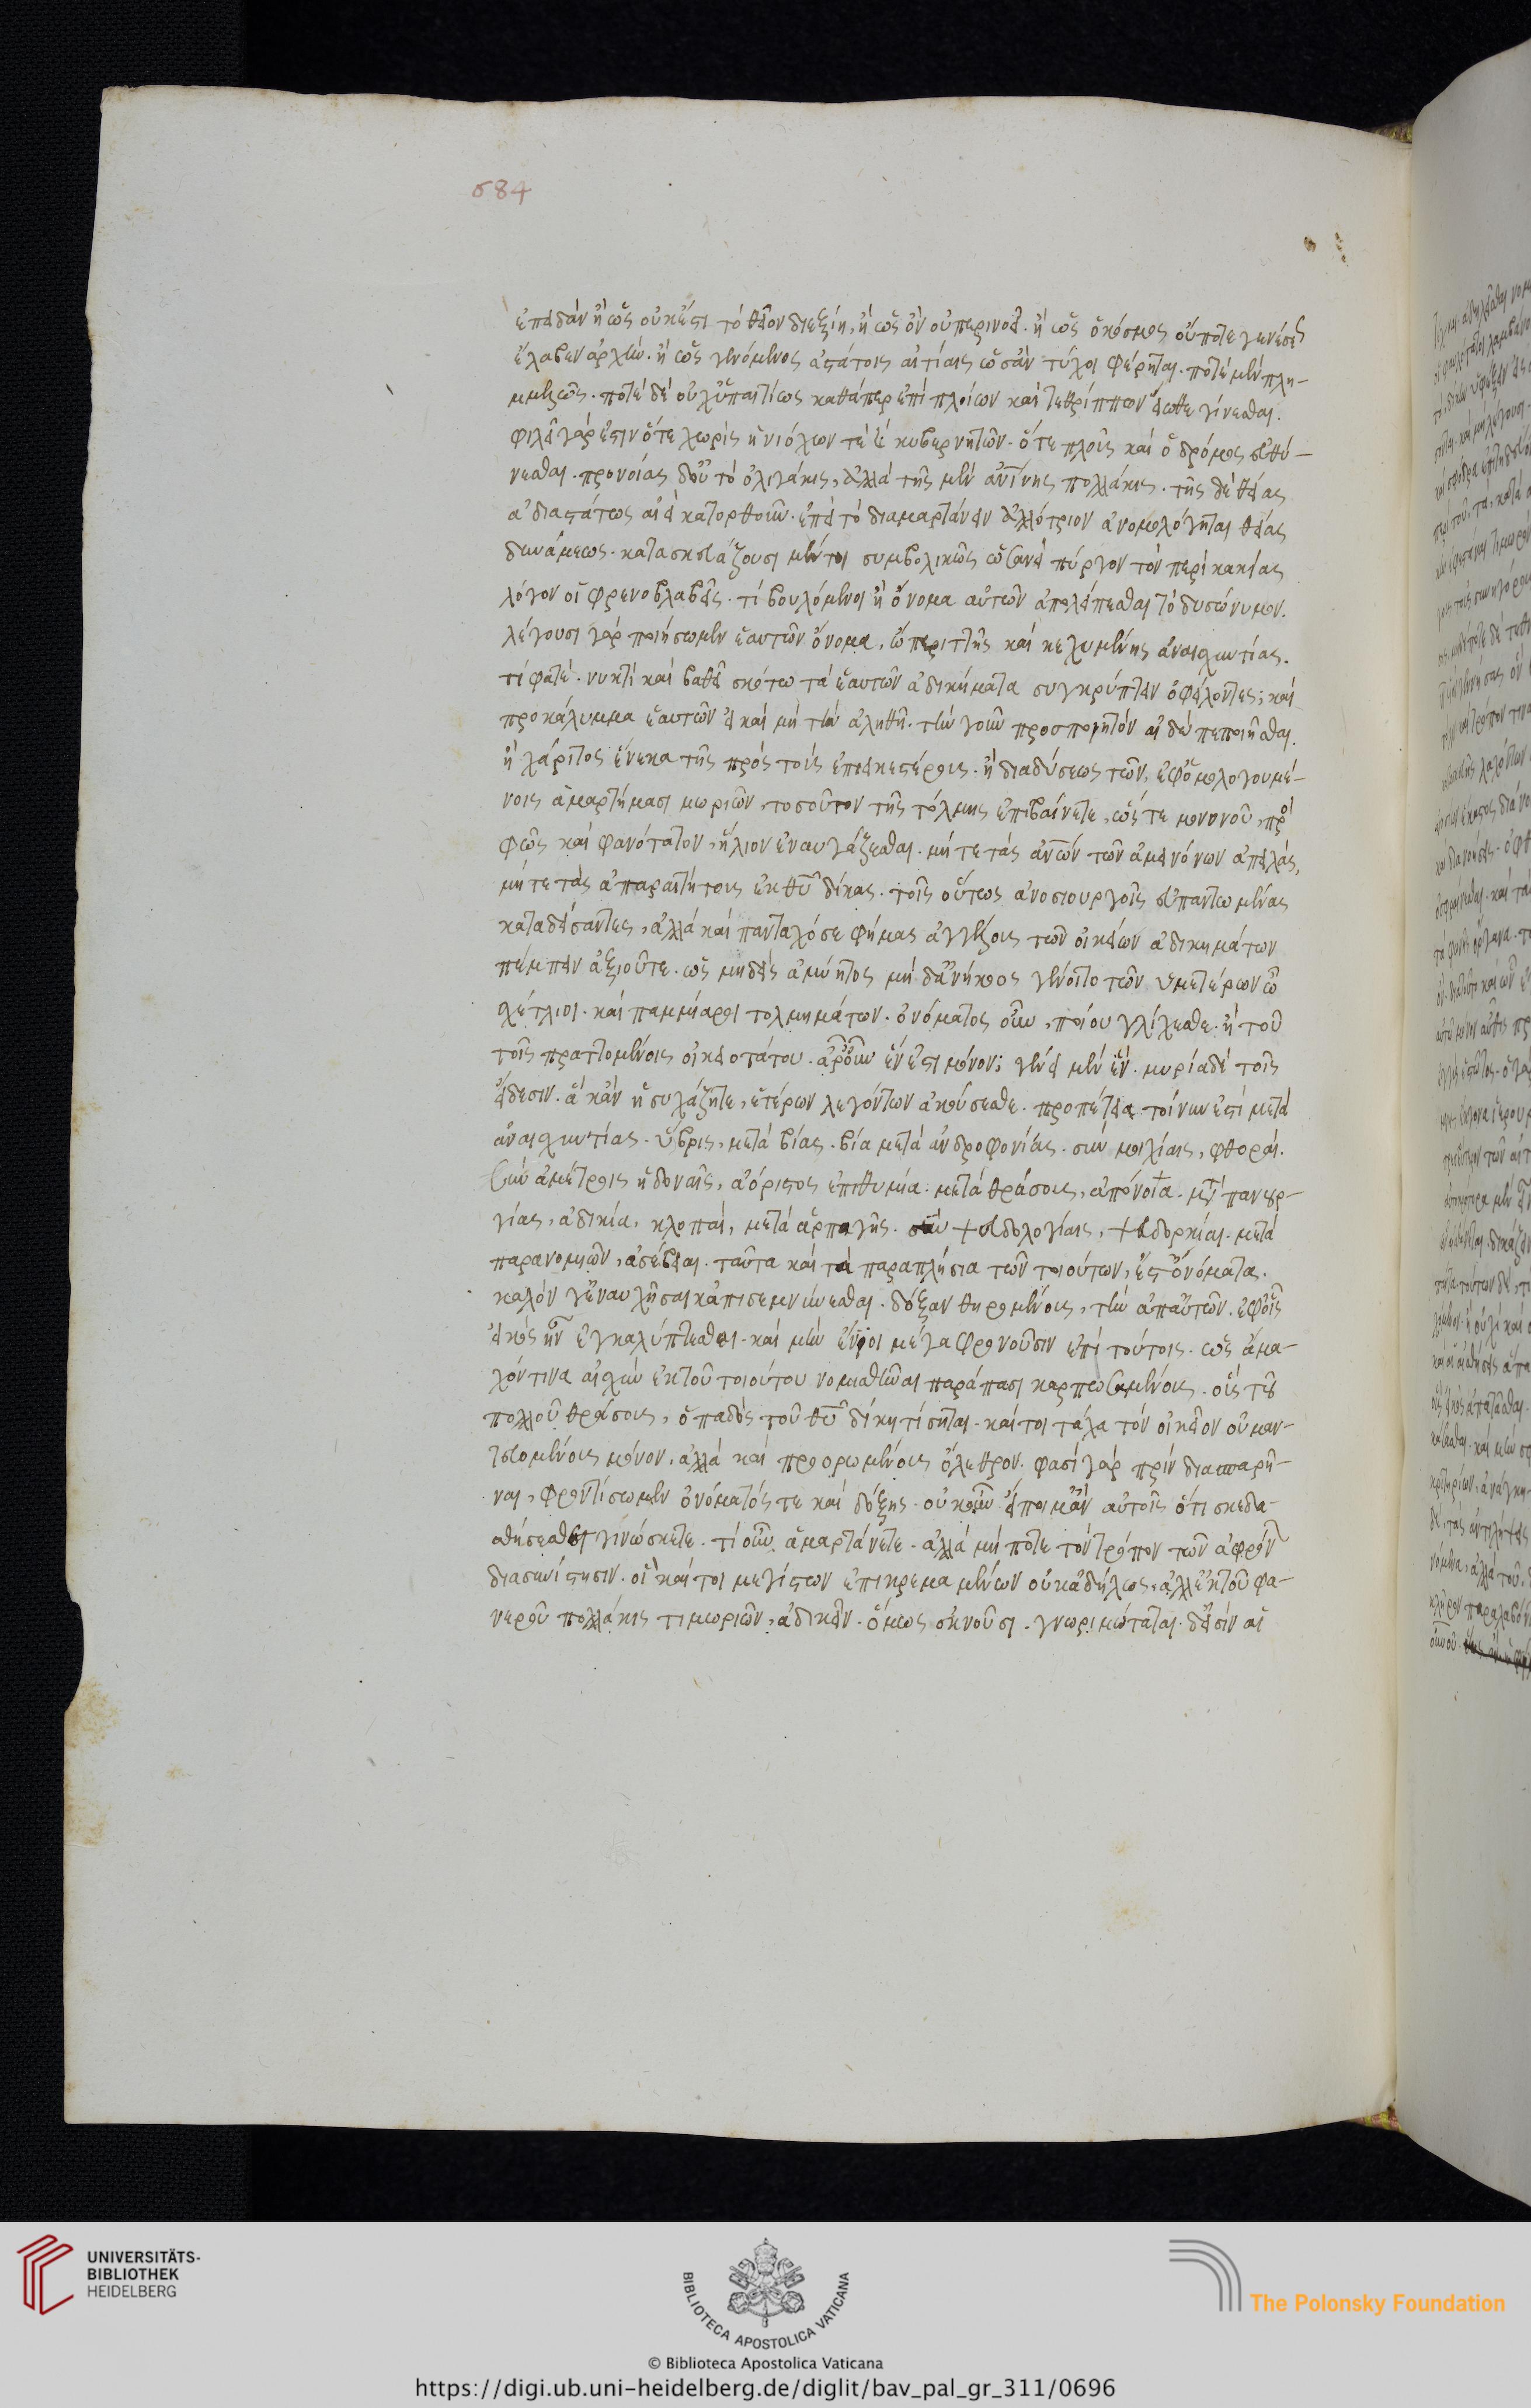 684
ἐπειδὰν ἢ ὡς οὐκ ἔστι τὸ θεῖον διεξίη, ἢ ὡς ὂν οὐ περινοεῖ. ἢ ὡς ὁ κόσμος οὔποτε γενέσεως
ἔλαβεν ἀρχήν. ἢ ὡς γενόμενος ἀστάτοις αἰτίαις ὡς ἂν τύχοι φέρηται. ποτὲ μὲν πλη-
μμελῶς. ποτὲ δὲ οὐχ ὑπαιτίως καθάπερ ἐπὶ πλοίων καὶ τεθρίππων εἴωθε γίνεσθαι.
φιλεῖ γὰρ ἔστιν ὅτε χωρὶς ἡνιόχων τὲ καὶ κυβερνητῶν. ὅ τε πλοῦς καὶ ὁ δρόμος εὐθύ-
νεσθαι. προνοίας δ' οὐ τὸ ὀλιγάκις, ἀλλὰ τῆς μὲν ἀνθρωπίνης πολλάκις. τῆς δὲ θείας
ἀδιαστάτως αἰεὶ κατορθοῦν. ἐπεὶ τὸ διαμαρτάνειν ἀλλότριον ἀνομολόγηται θείας
δυνάμεως. κατασκευάζουσι μέντοι συμβολικῶς ὡσανεὶ πύργον τὸν περὶ κακίας
λόγον οἱ φρενοβλαβεῖς. τί βουλόμενοι ἢ ὄνομα αὐτῶν ἀπολείπεσθαι τὸ δυσώνυμον.
λέγουσι γὰρ ποιήσωμεν ἑαυτῶν ὄνομα, ὢ περιττῆς καὶ κεχυμένης ἀναισχυντίας.
τί φατέ. νυκτὶ καὶ βαθεῖ σκότω τὰ ἑαυτῶν ἀδικήματα συγκρύπτειν ὀφείλοντες; καὶ
προκάλυμμα ἑαυτῶν εἰ καὶ μὴ τὴν ἀληθῆ. τὴν γοῦν προσποιητὸν αἰδῶ πεποιῆσθαι.
ἢ χάριτος ἕνεκα τῆς πρὸς τοὺς ἐπιεικεστέρους. ἢ διαδύσεως τῶν, ἐφ' ὁμολογουμέ-
νοις ἁμαρτήμασι μωριῶν, τοσοῦτον τῆς τόλμης ἐπιβαίνετε, ὥς τε μονονοῦ, πρὸς
φῶς καὶ φανότατον, ἥλιον ἐναυγάζεσθαι. μήτε τὰς ἀνθρώπων τῶν ἀμεινόνων ἀπειλὰς,
μήτε τὰς ἀπαραιτήτους ἐκ θεοῦ δίκας. τοῖς οὕτως ἀνοσιουργοῖς ἀπαντωμένας
καταδείσαντες, ἀλλὰ καὶ πανταχόσε φήμας ἀγγέλους τῶν οἰκείων ἀδικημάτων
πέμπειν ἀξιοῦτε. ὡς μηδεὶς ἀμύητος μὴ δ' ἀνήκοος γένοιτο τῶν ὑμετέρων ὦ
σχέτλιοι. καὶ παμμίαροι τολμημάτων. ὀνόματος οὖν, ποίου γλίχεσθε. ἢ τοῦ
τοῖς πραττομένοις οἰκειοτάτου. ἆρ' οὖν ἕν ἐστι μόνον; γένει μὲν ἕν. μυρία δὲ τοῖς
εἴδεσιν. ἃ κἂν ἡσυχάζητε, ἑτέρων λεγόντων ἀκούσεσθε. προπέτεια τοίνυν ἐστὶ μετὰ
ἀναισχυντίας. ὕβρις, μετὰ βίας. βία μετὰ ἀνδροφονίας. σὺν μοιχίαις, φθοραί.
σὺν ἀμέτροις ἡδοναῖς, ἀόριστος ἐπιθυμία. μετὰ θράσους, ἀπόνοια. μετὰ πανουρ-
γίας, ἀδικία, κλοπαί, μετὰ ἁρπαγῆς. σὺν ψευδολογίαις, ψευδορκίαι. μετὰ
παρανομιῶν, ἀσέβειαι. ταῦτα καὶ τὰ παραπλήσια τῶν τοιούτων, ἔστ' ὀνόματα.
καλόν γ' ἐναυχῆσαι κἀπισεμνύνεσθαι. δόξαν θηρωμένους, τὴν ἀπ' αὐτῶν. ἐφ' οἷς
εἰκὸς ἦν ἐγκαλύπτεσθαι. καὶ μὴν ἔνιοι μέγα φρονοῦσιν ἐπὶ τούτοις. ὡς ἄμα-
χόν τινα ἰσχὺν ἐκ τοῦ τοιούτου νομισθῆναι παράπασι καρπωσαμένους. οὓς τῆς
πολλοῦ θράσους, ὀπαδὸς τοῦ θεοῦ δίκη τίσηται. καίτοι τάχα τὸν οἰκεῖον οὐ μαν-
τευομένους μόνον, ἀλλὰ καὶ προορωμένους ὄλεθρον. φασὶ γὰρ πρὶν διασπαρῆ-
ναι, φροντίσωμεν ὀνόματός τε καὶ δόξης. οὐκοῦν εἴποιμ' ἂν αὐτοῖς ὅτι σκεδα-
σθήσεσθαι γινώσκετε. τί οὖν ἁμαρτάνετε. ἀλλὰ μή ποτε τὸν τρόπον τῶν ἀφρόνων
διασυνίστησιν. οἳ καίτοι μεγίστων ἐπικρεμαμένων οὐκ ἀδήλως, ἀλλ' ἐκ τοῦ φα-
νεροῦ πολλάκις τιμωριῶν, ἀδικεῖν. ὅμως οὐκ ὀκνοῦσι. γνωριμώταται. δ' εἰσὶν αἱ
UNIVERSITÄTS-
BIBLIOTHEK
HEIDELBERG
BIBLIOTECA APOSTOLICA VATICANA
The Polonsky Foundation
© Biblioteca Apostolica Vaticana
https://digi.ub.uni-heidelberg.de/diglit/bav_pal_gr_311/0696